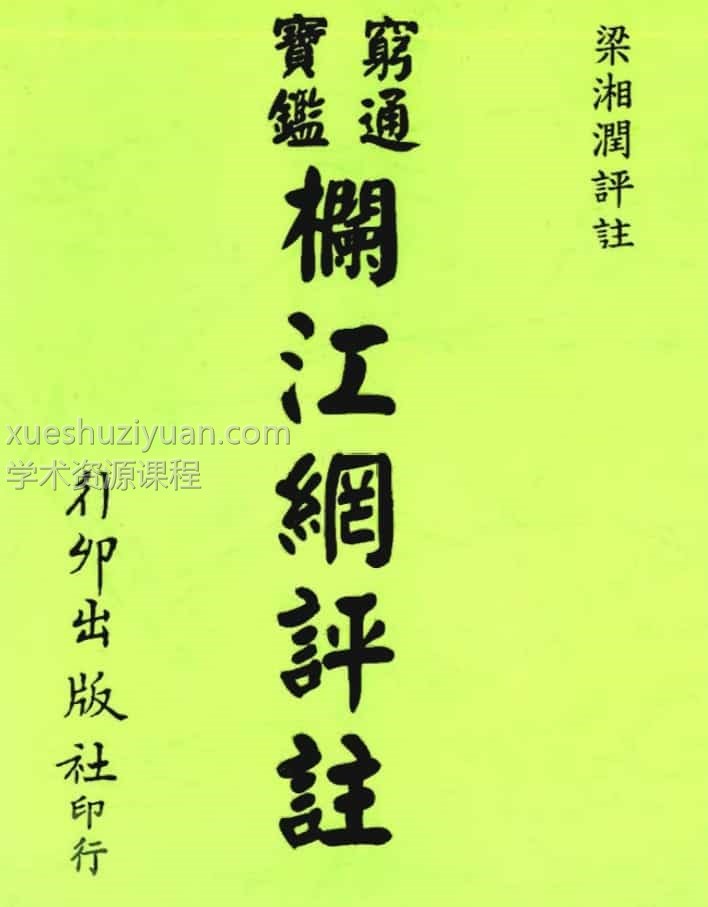 梁湘潤評註
窮通
寶鑑
欄江網評註
行卯出版社印行
xueshuziyuan.com
学术资源课程